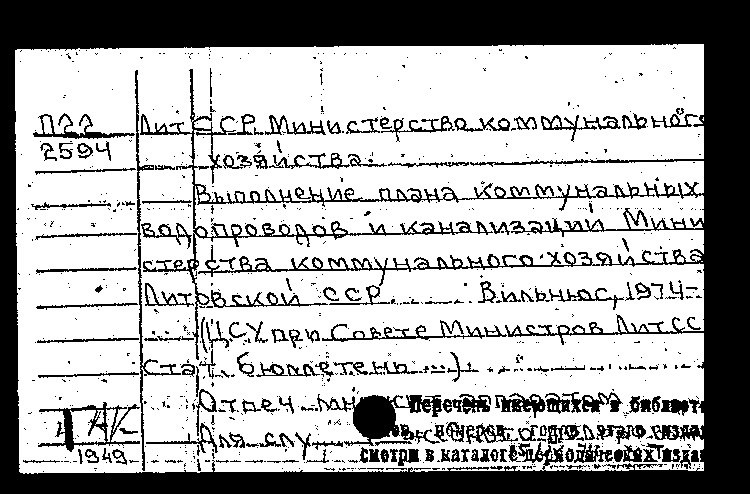 П22 ЛитССР. Министерство коммунального
2594 хозяйства.
Выполнение плана коммунальных
водопроводов и канализации Мини
стерства коммунального хозяйства
Литовской ССР. Вильнюс, 1974-
(ЦСУ при Совете Министров ЛитСС
Стат. бюллетень ...)
Отпеч. аппаратом
Перечень имеющихся в библиоте
Для слу
номеров, годов этого издан
смотри в каталоге периодических издан
1949